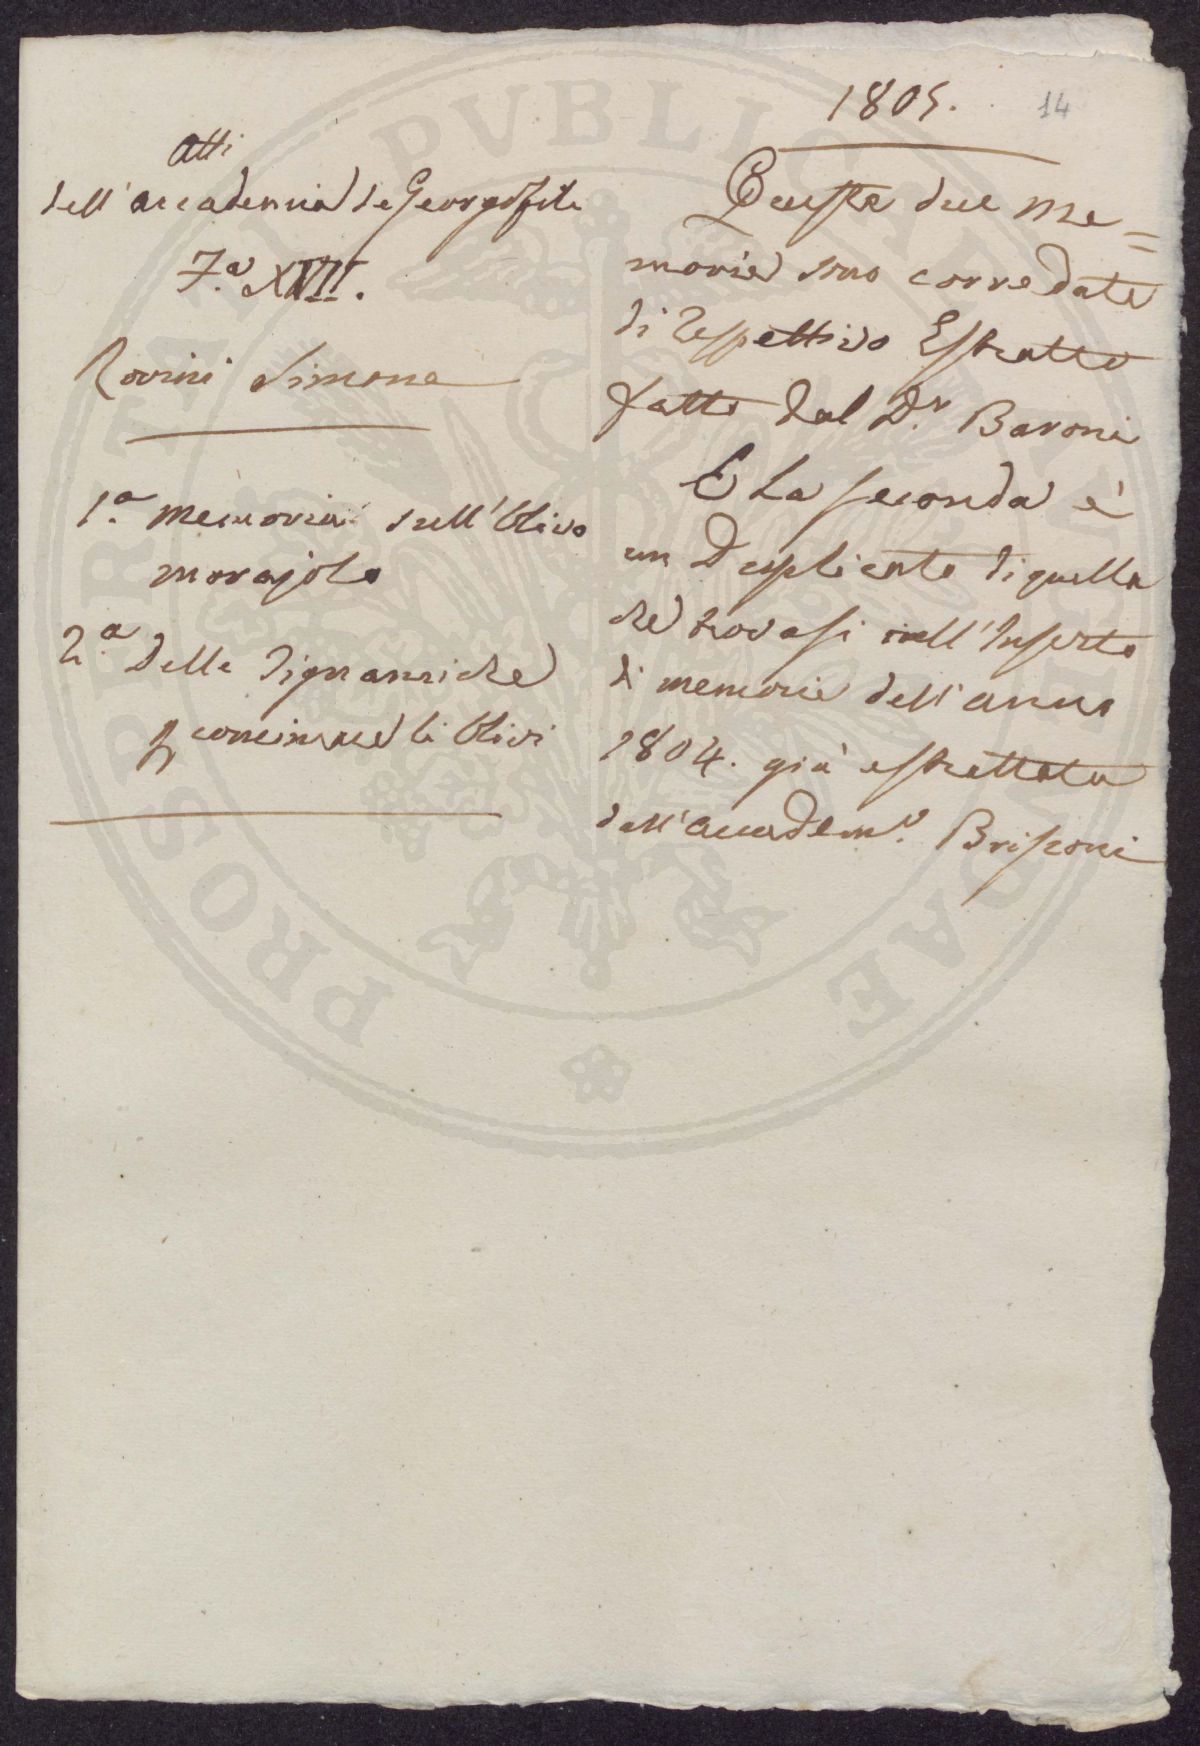 1805.
14
Atti
dell'accademia de Georgofili
7.a XVII.
Rovini Simone
1.a memoria sull'Olivo
morajolo
2.a Delle
p concimare li Olivi
Queste due me=
morie sono corredate
di respettivo Estratto
fatto dal Dr. Baroni
E la seconda è
un Duplicato di quella
che trovasi nell'Inserto
di memorie dell'anno
1804. già estrattata
dall'accadem.o Brisconi
PROSPERITATI PVBLICAE AVGENDAE